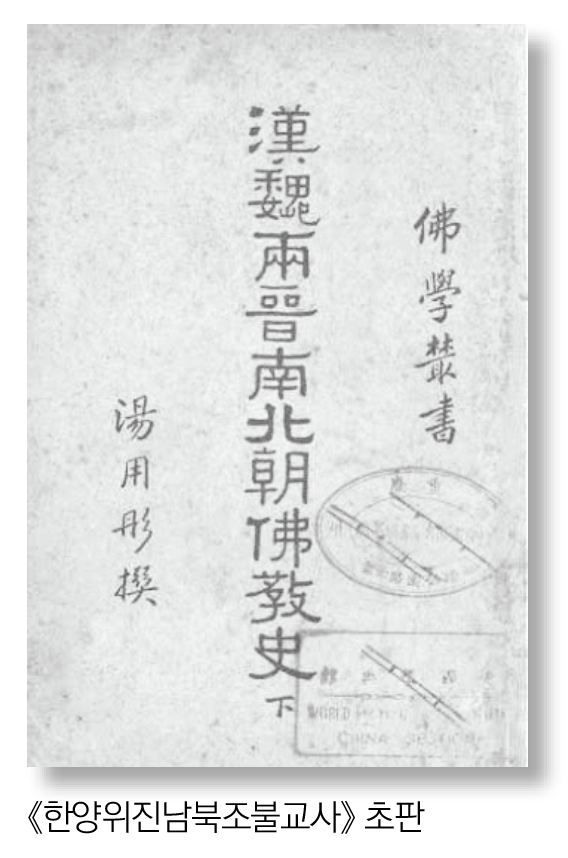 佛學叢書
漢魏兩晉南北朝佛教史
下
湯用彤撰
WORLD
CHINA SECTION
《한양위진남북조불교사》 초판